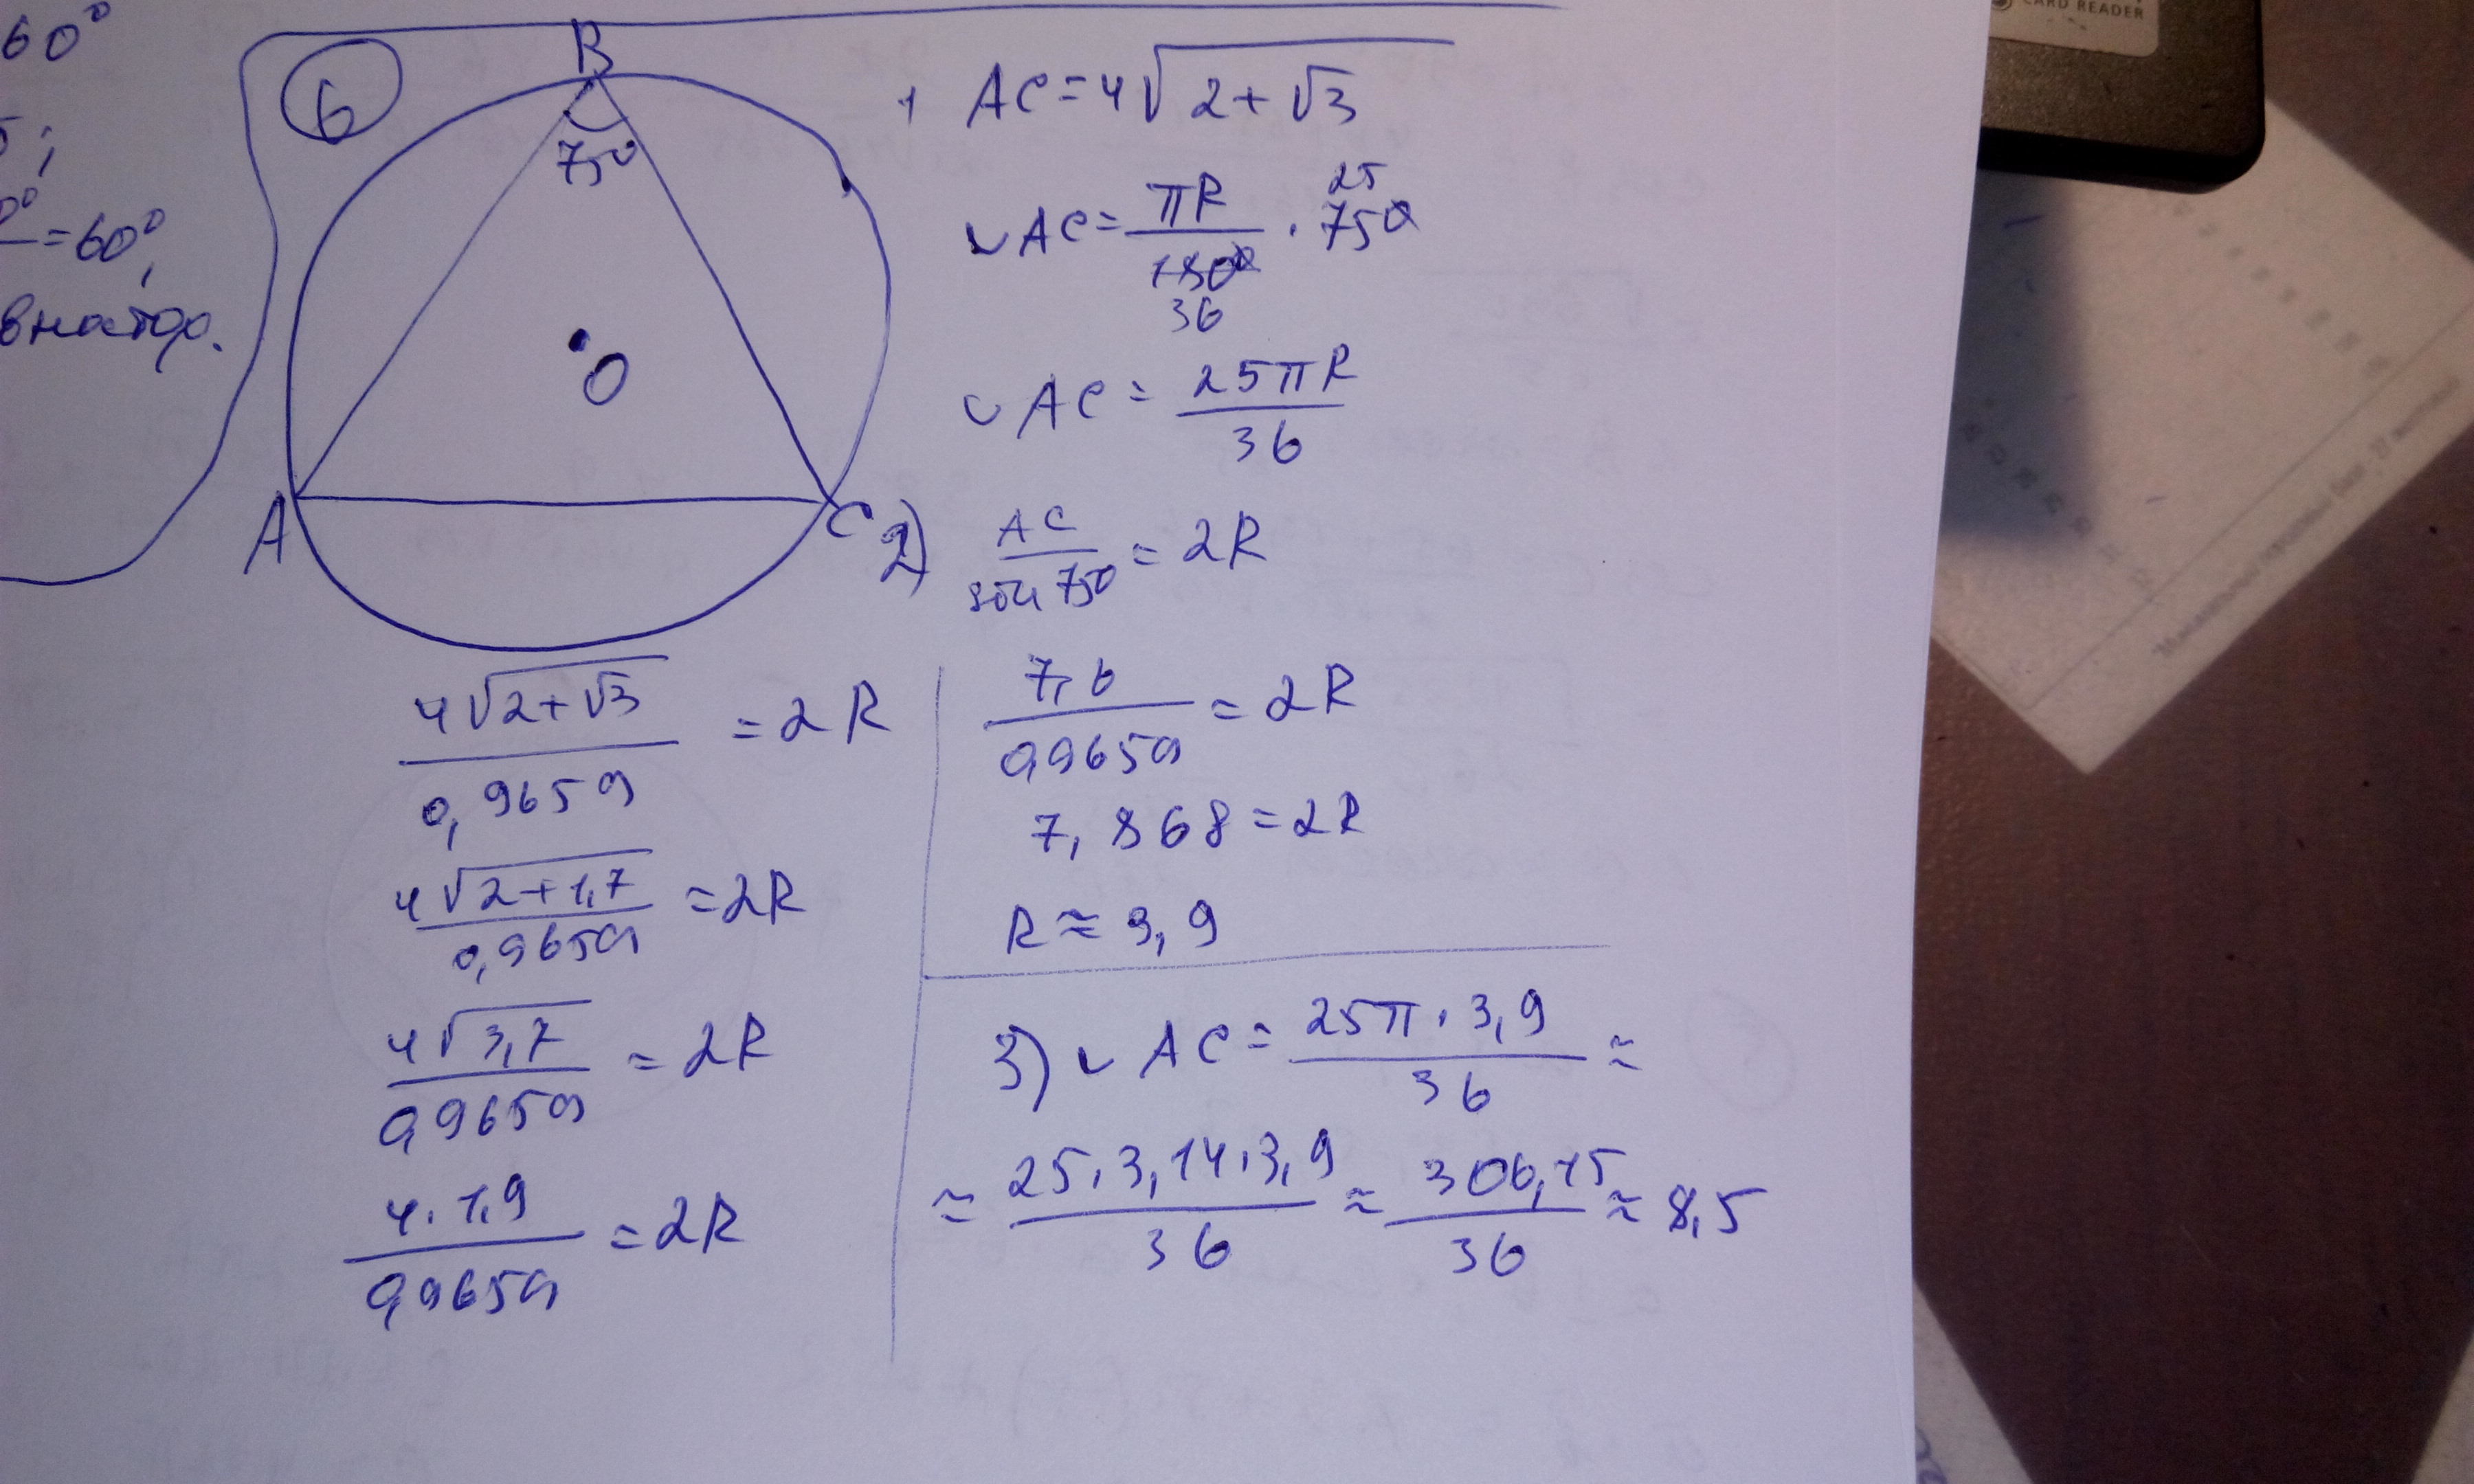 60°
5;
=60°,
6
B
75°
O
A
C
1 AC=4√(2+√3)
◡AC=πR/180° · 75°
25
36
◡AC=25πR/36
2) AC/sin 75° = 2R
4√(2+√3)/0,9659 = 2R
4√(2+1,7)/0,9659 = 2R
4√3,7/0,9659 = 2R
4·1,9/0,9659 = 2R
7,6/0,9659 = 2R
7,868=2R
R≈3,9
3) ◡AC=25π·3,9/36 ≈
≈ 25·3,14·3,9/36 ≈ 306,15/36 ≈ 8,5
CARD READER